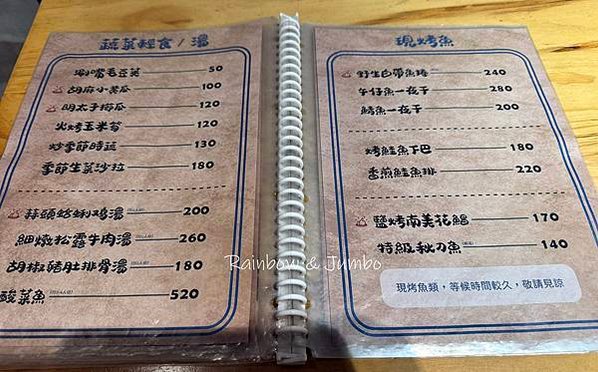 蔬菜輕食 / 湯
涮嘴毛豆莢 50
胡麻小黃瓜 100
明太子搭瓜 120
火烤玉米筍 120
炒季節時蔬 130
季節生菜沙拉 180
蒜頭蛤蜊鷄湯 200
細燉松露牛肉湯 260
胡椒豬肚排骨湯 180
酸菜魚 520
現烤魚
野生白帶魚捲 240
午仔魚一夜干 280
鯖魚一夜干 200
烤鮭魚下巴 180
香煎鮭魚排 220
鹽烤南美花鯧 170
特級秋刀魚 140
現烤魚類，等候時間較久，敬請見諒
Rainbow & Jumbo